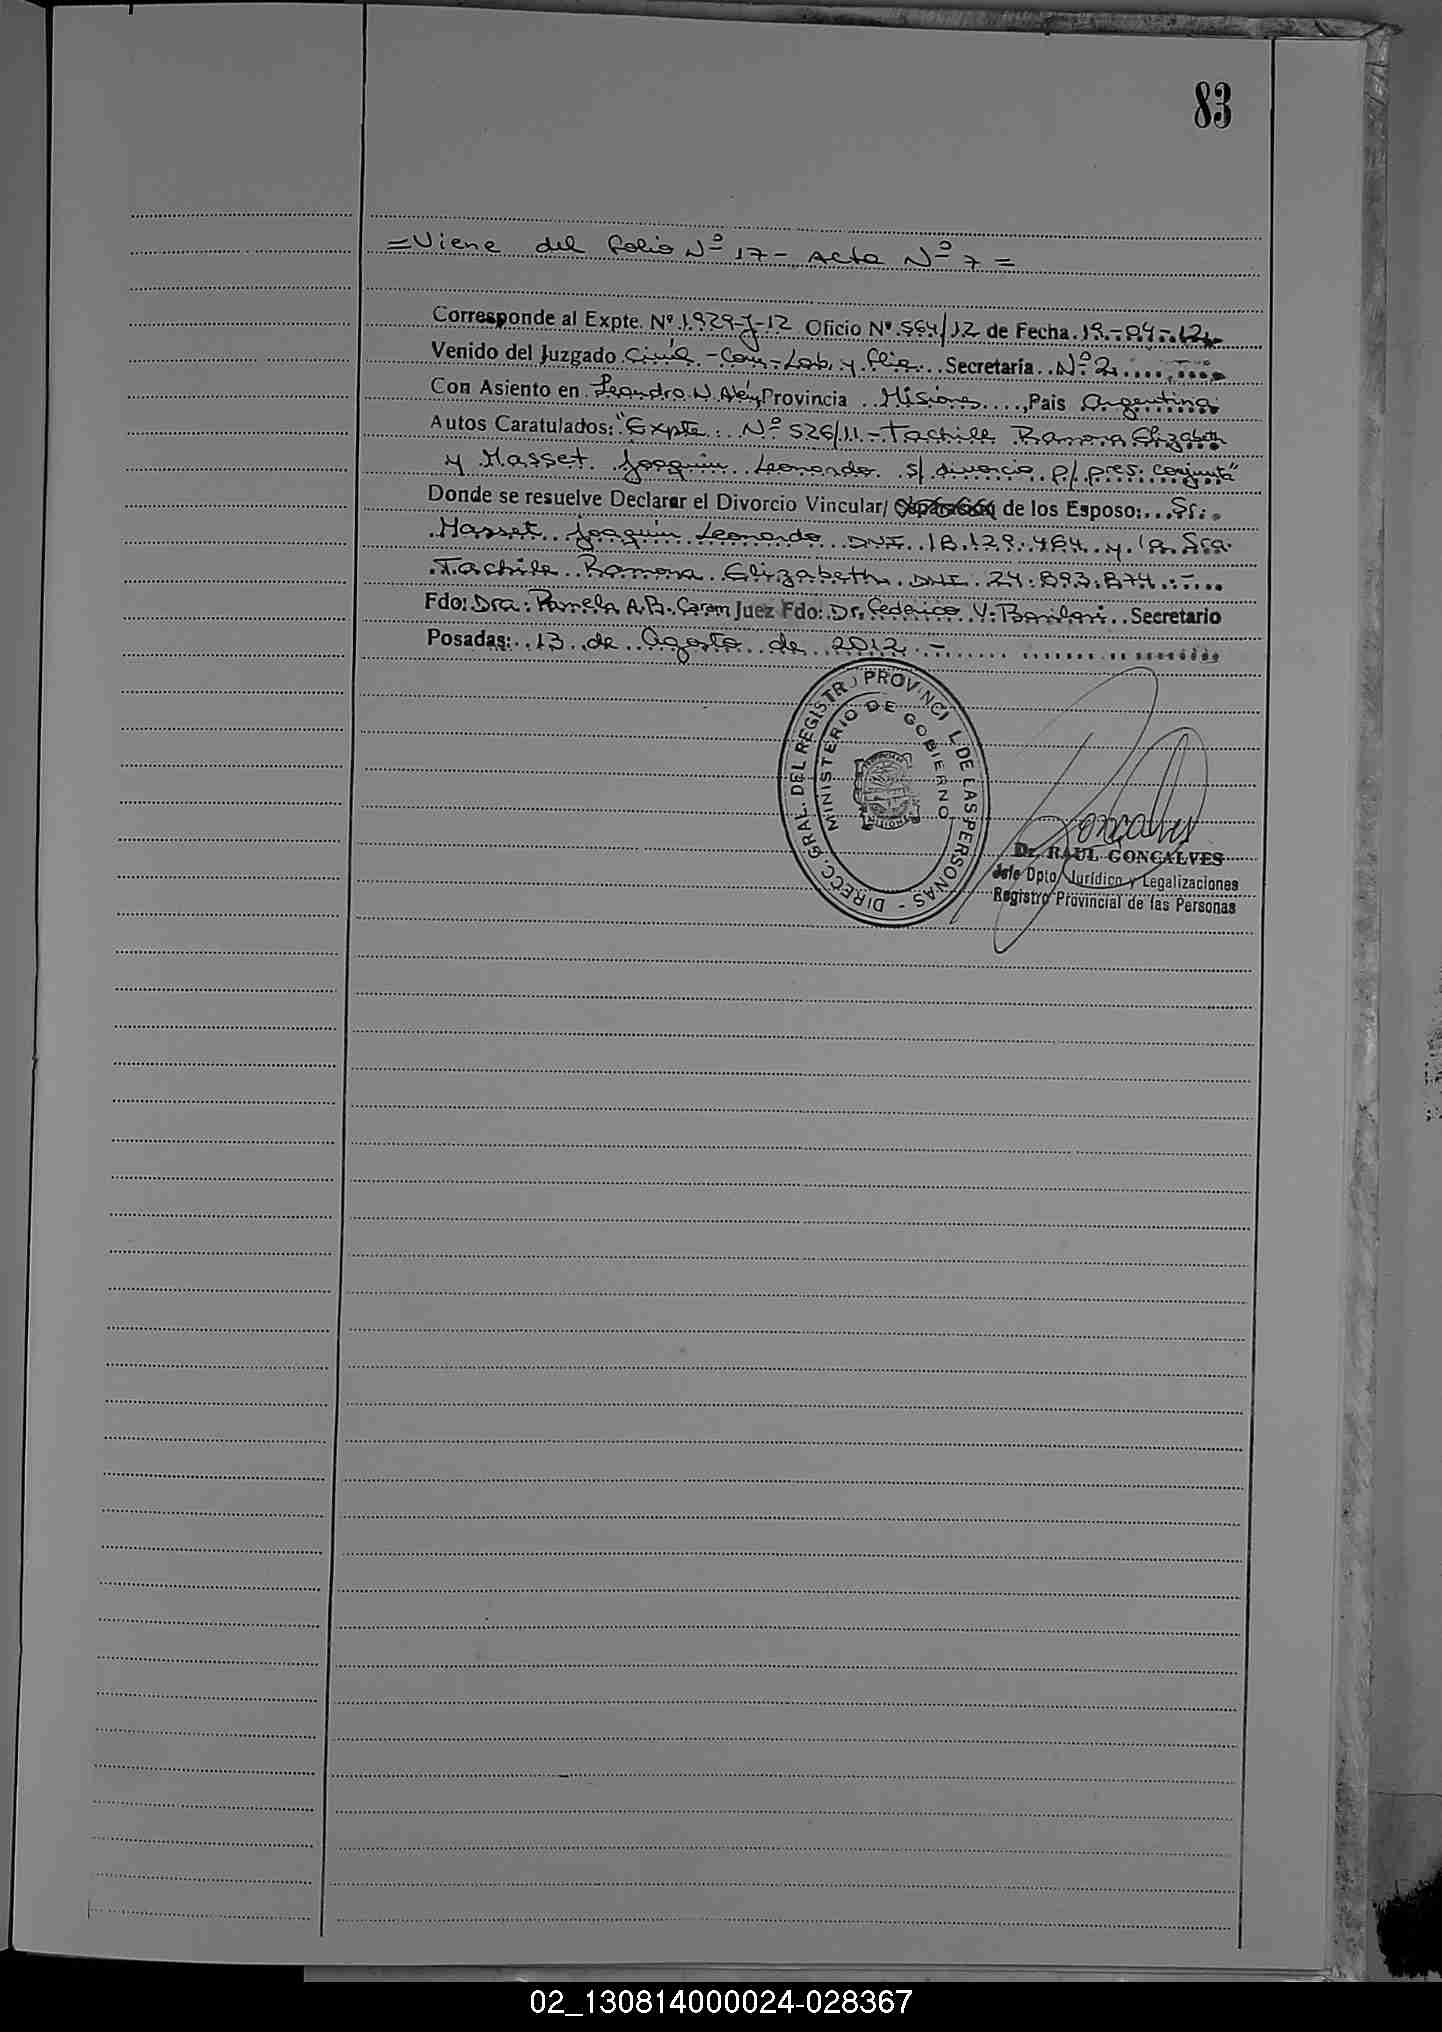 83
=Viene del folio Nº 17 - Acta Nº 7 =
Corresponde al Expte. Nº 1929-J-12 Oficio Nº 564/12 de Fecha 19-04-12
Venido del Juzgado Civil - Com - Lab. y flia. Secretaría Nº 2
Con Asiento en Leandro N. Alem Provincia Misiones, País Argentina
Autos Caratulados: "Expte. Nº 526/11 - Tachile Ramona Elizabeth
y Masset Joaquin Leonardo s/ divorcio p/ pres. conjunta"
Donde se resuelve Declarar el Divorcio Vincular/ de los Esposo: Sr.
Masset Joaquin Leonardo DNI 18.129.464 y la Sra.
Tachile Ramona Elizabeth DNI 24.893.874.-
Fdo: Dra. Pamela A.B. Caram Juez Fdo: Dr. Federico V. Barilari Secretario
Posadas: 13 de Agosto de 2012 -
DIRECC. GRAL. DEL REGISTRO PROVINCI L DE LAS PERSONAS -
MINISTERIO DE GOBIERNO
MISIONES
Dr. RAUL GONCALVES
Jefe Dpto. Jurídico y Legalizaciones
Registro Provincial de las Personas
02_130814000024-028367